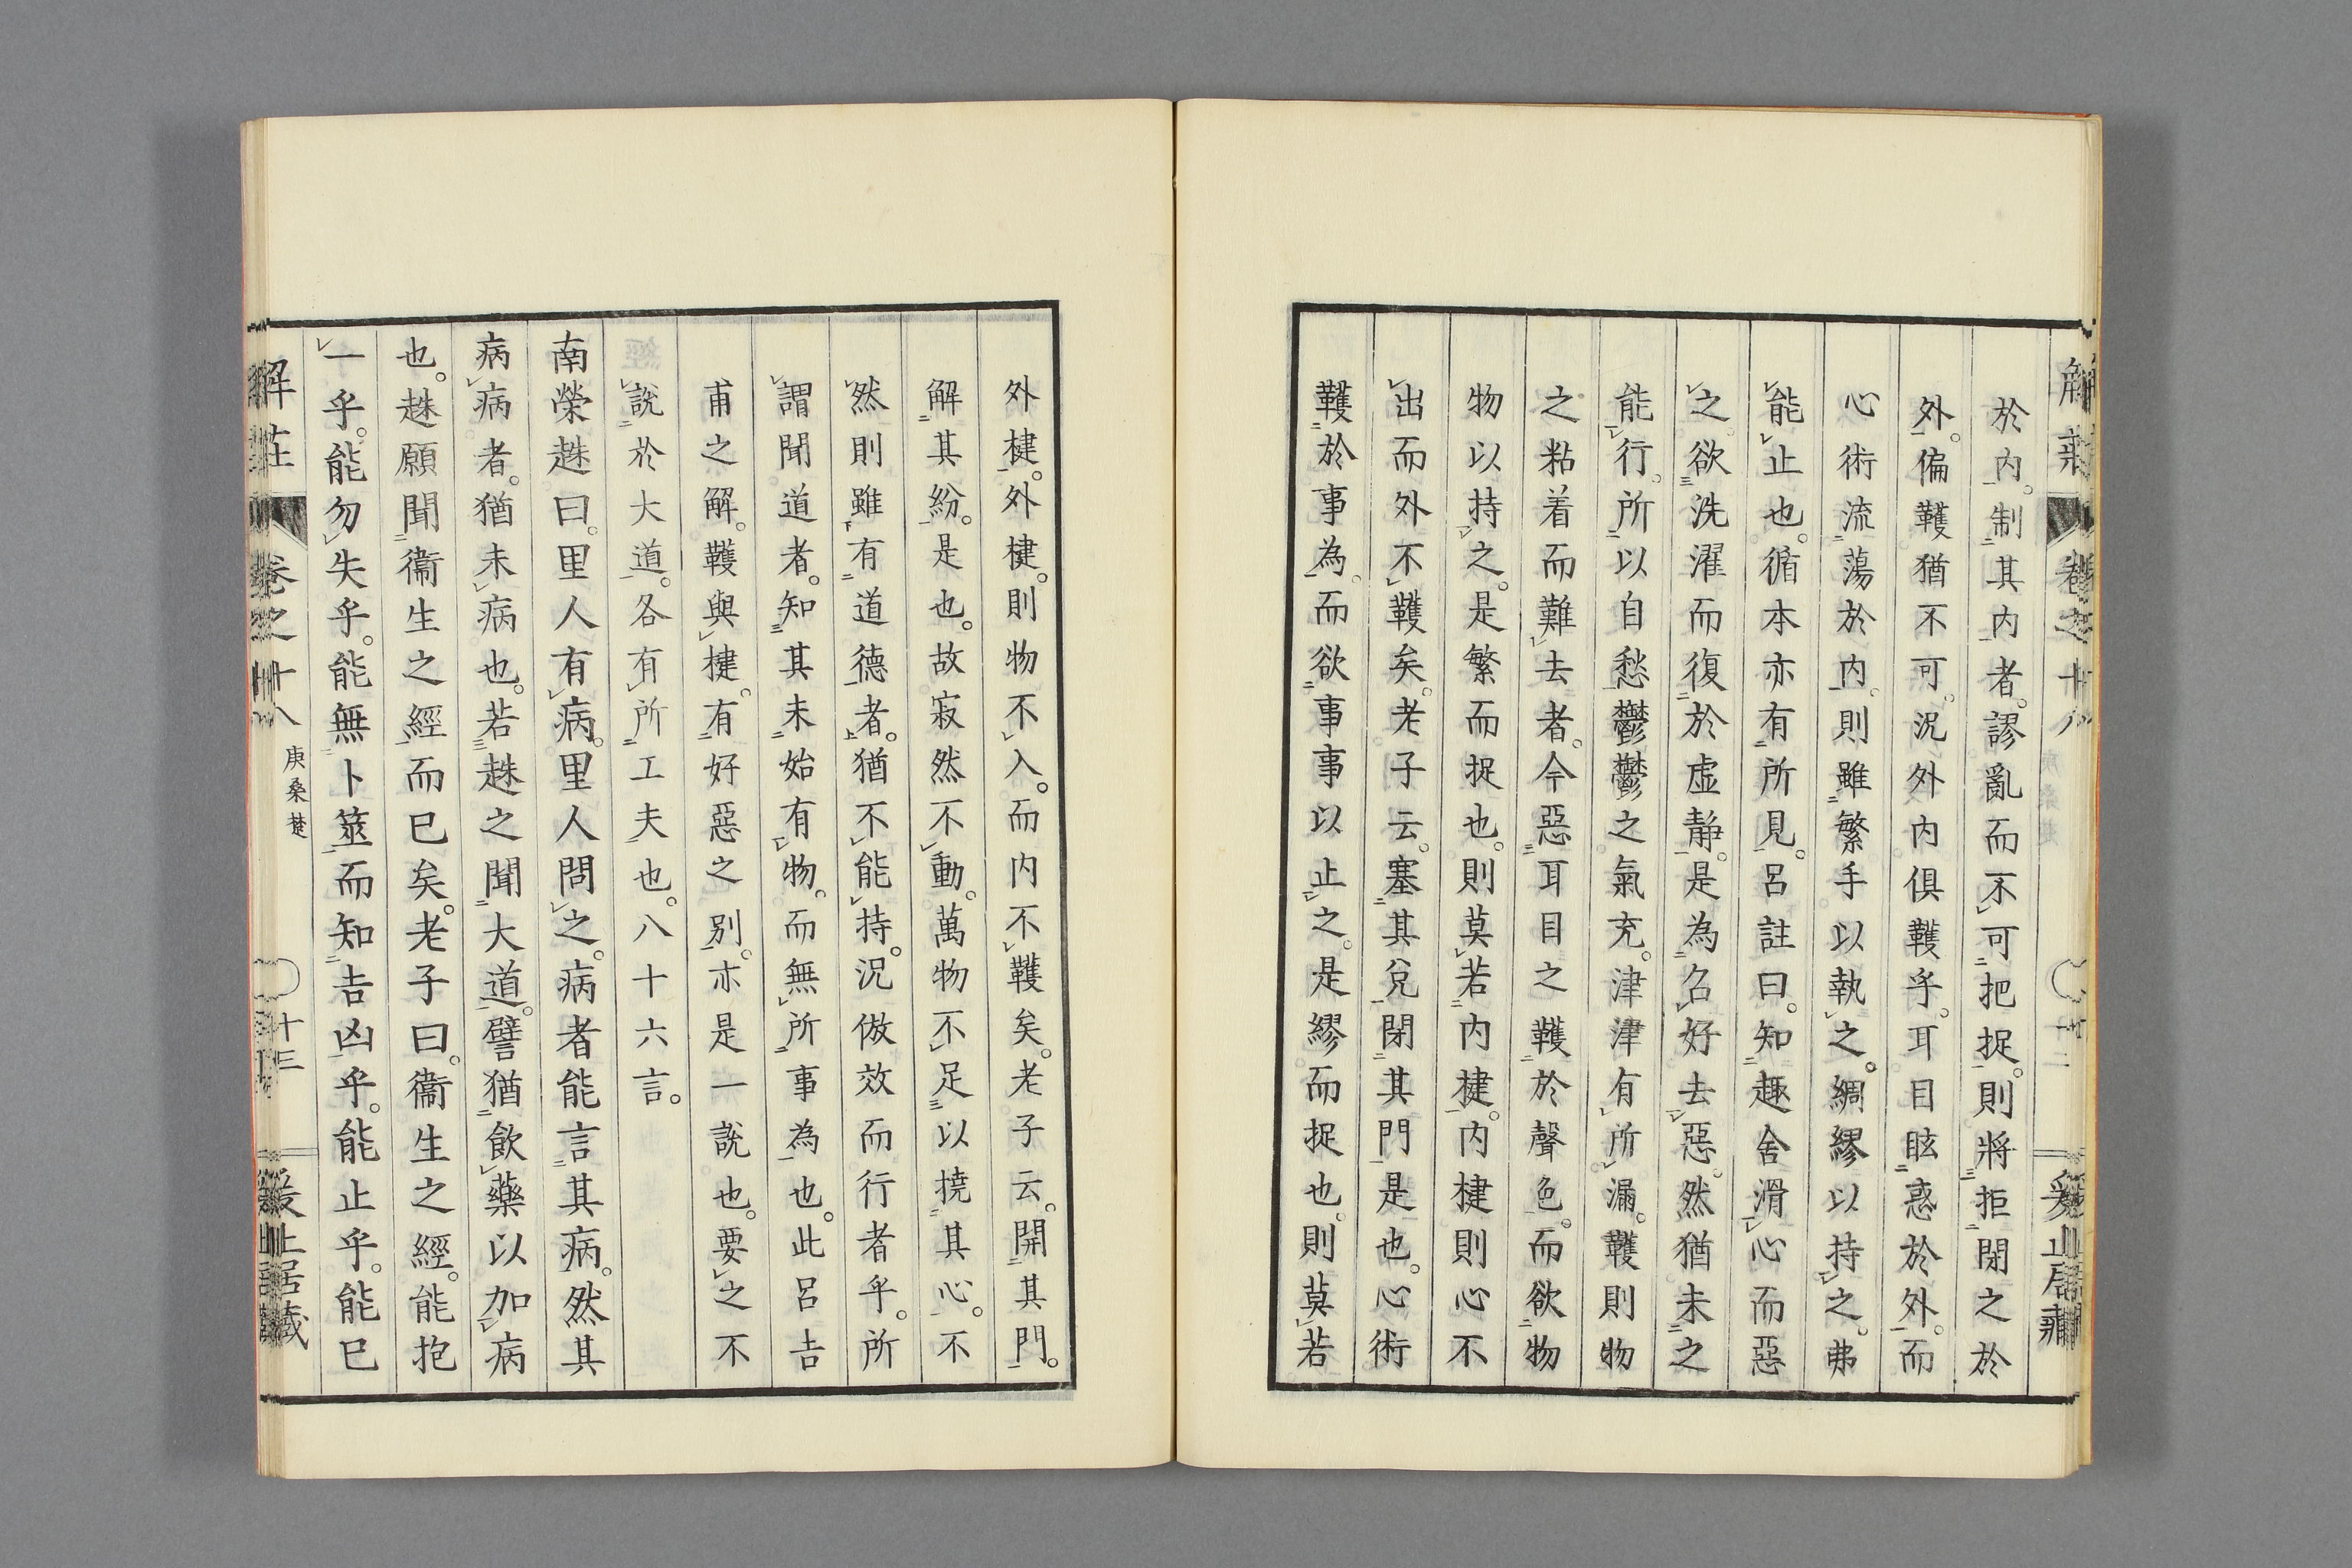 於内。制其内者。謬亂而不可把捉。則將拒閉之於
外。偏韄猶不可。況外内俱韄乎。耳目眩惑於外。而
心術流蕩於内。則雖繁手以執之。綢繆以持之。弗
能止也。循本亦有所見。呂註曰。知趣舍滑心而惡
之欲洗濯而復於虛靜。是為名好去惡。然猶未之
能行。所以自愁鬱鬱之氣充。津津有所漏。韄則物
之粘着而難去者。今惡耳目之韄於聲色。而欲物
物以持之。是繁而捉也。則莫若内揵。内揵則心不
出而外不韄矣。老子云。塞其兌。閉其門。是也。心術
韄於事為。而欲事事以止之。是繆而捉也。則莫若
外揵。外揵。則物不入。而内不韄矣。老子云。開其門。
解其紛。是也。故寂然不動。萬物不足以撓其心。不
然則雖有道德者。猶不能持。況倣效而行者乎。所
謂聞道者。知其未始有物。而無所事為也。此呂吉
甫之解。韄與揵。有好惡之別。亦是一說也。要之不
說於大道。各有所工夫也。八十六言。
南榮趎曰。里人有病。里人問之。病者能言其病。然其
病病者。猶未病也。若趎之聞大道。譬猶飲藥以加病
也。趎願聞衞生之經而已矣。老子曰。衞生之經。能抱
一乎。能勿失乎。能無卜筮而知吉凶乎。能止乎。能已
解莊 卷之十八 庚桑楚 十三